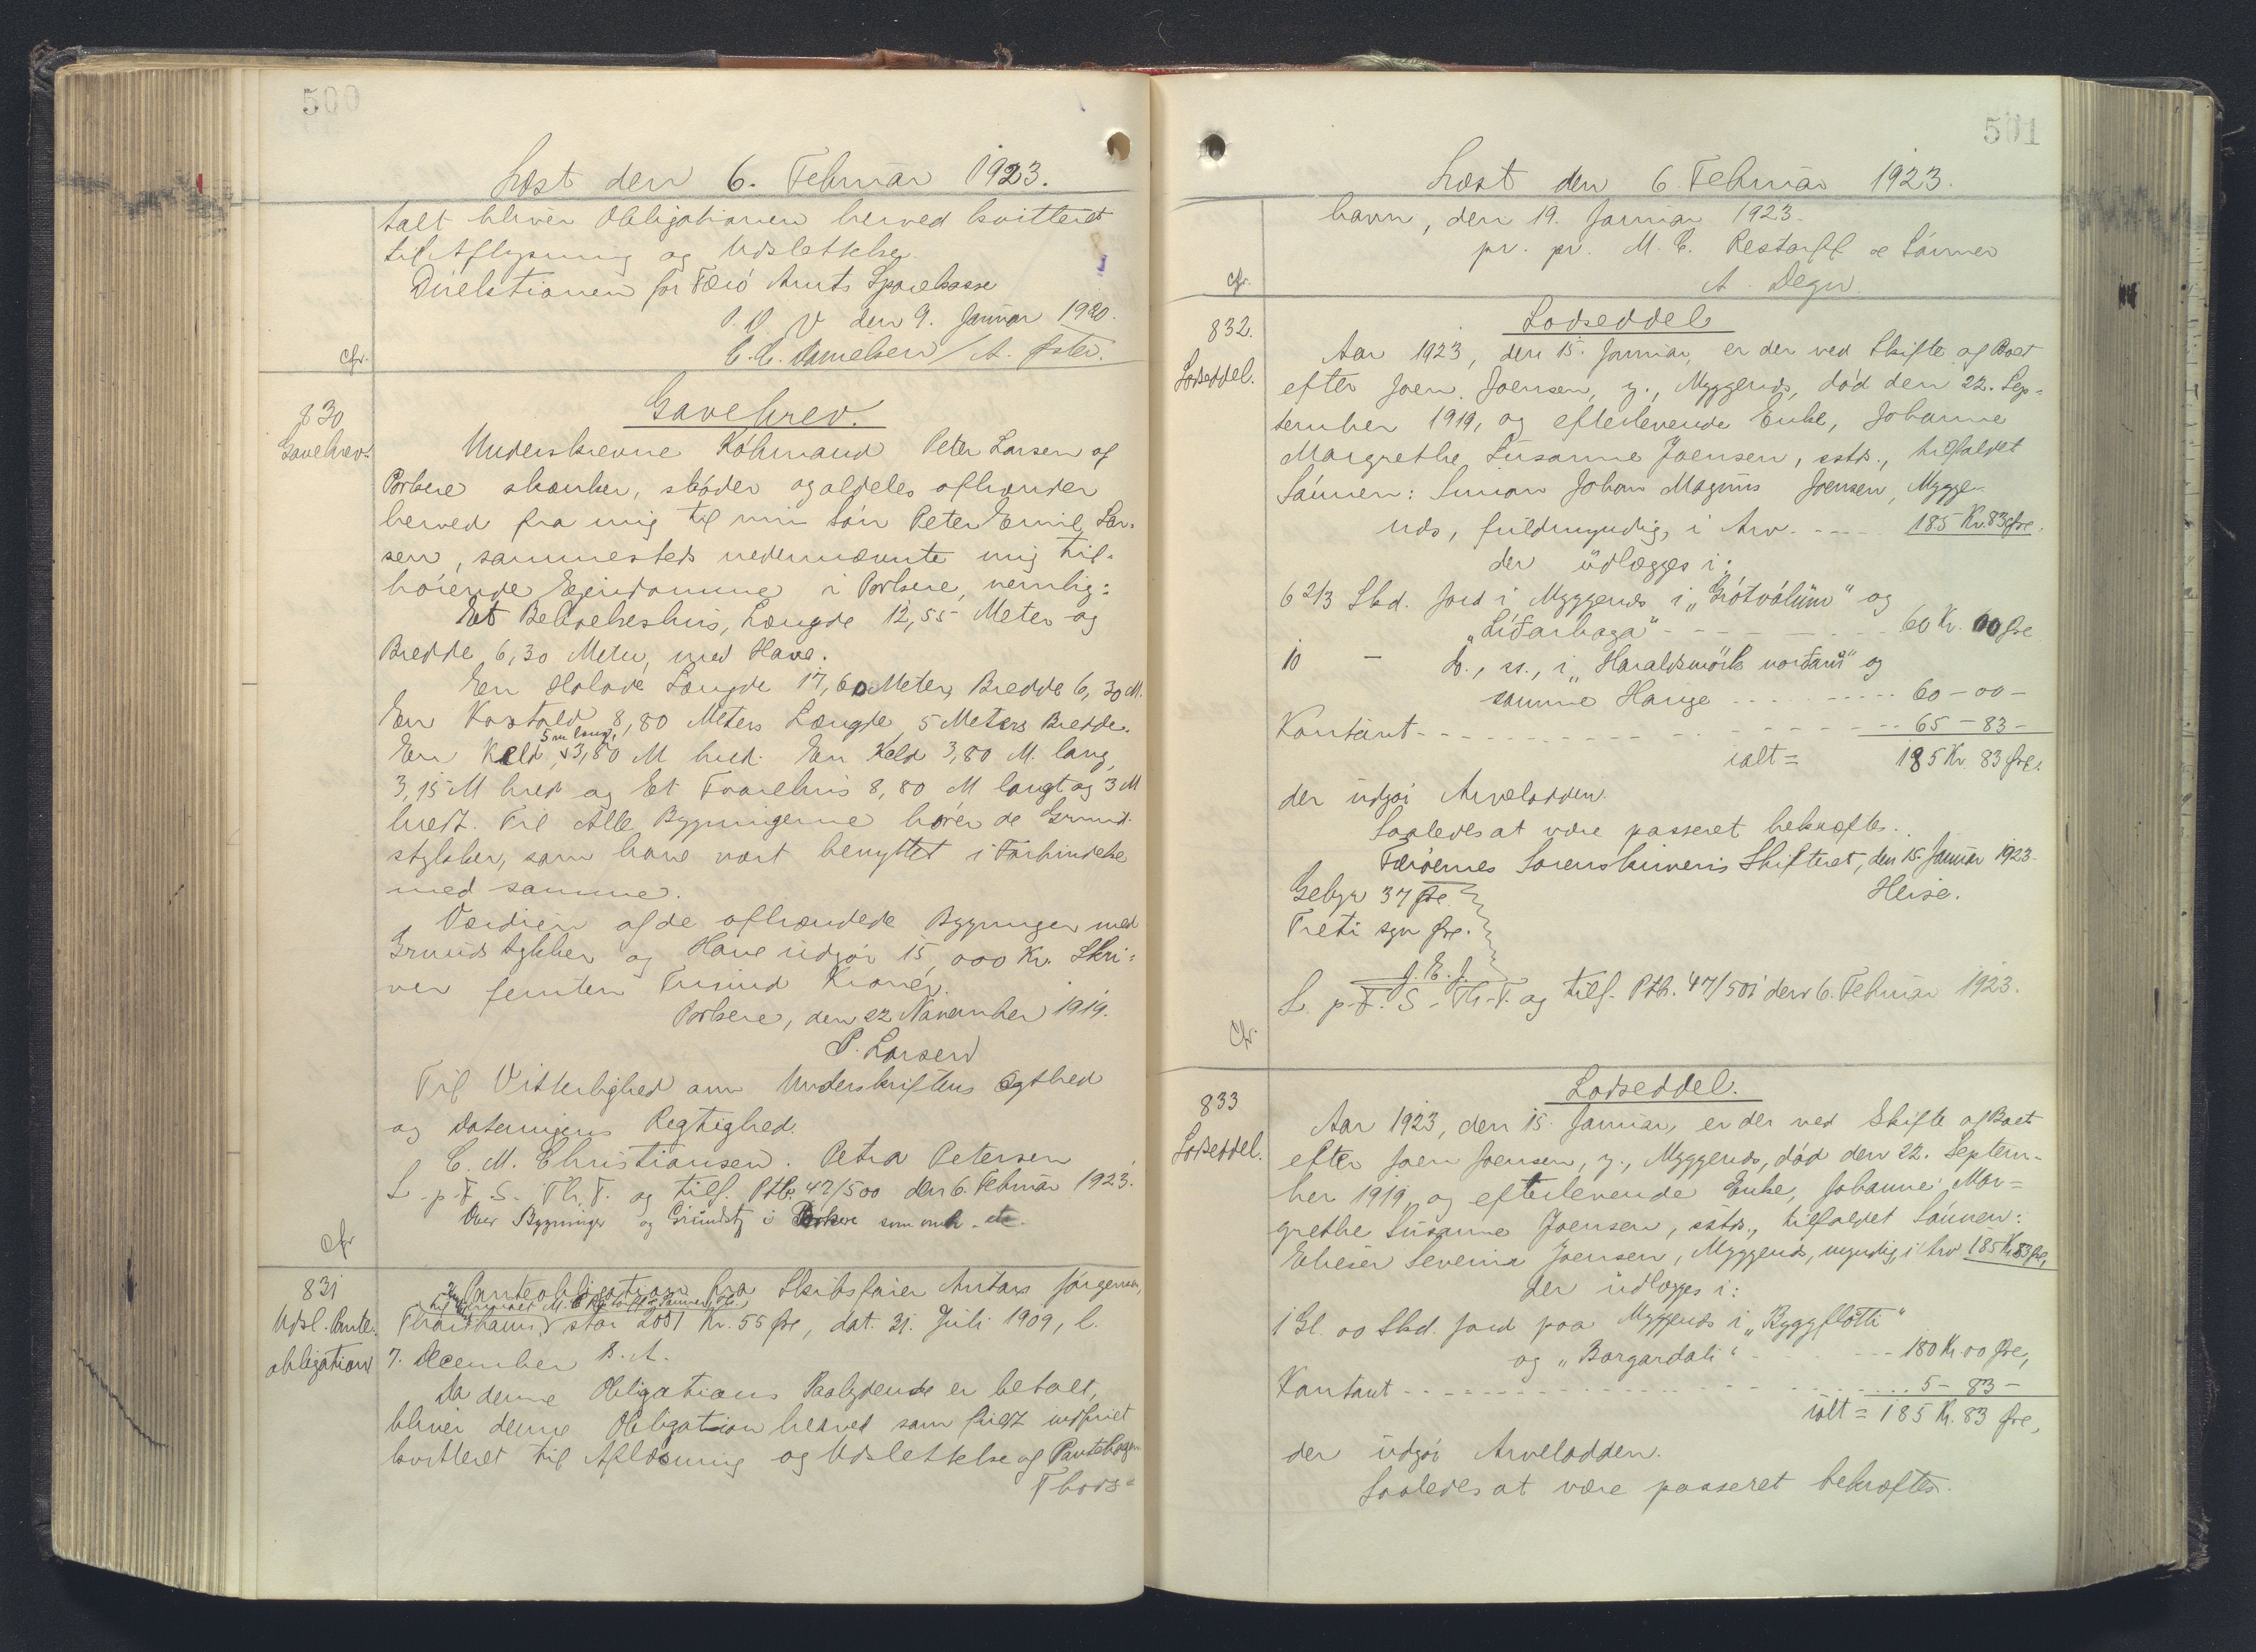 500
Læst den 6. Februar 1923.
talt bliver Obligationen herved kvitteret
til Aflysning og Udslettelse.
Direktionen for Færö Amts Sparekasse
P. D. V den 9. Januar 1920.
C. C. Danielsen / A. Öster.
cfr.
830
Gavebrev.
Gavebrev.
Underskrevne Köbmand Peter Larsen af
Porkere skænker, sköder og aldeles afhænder
herved fra mig til min Sön Peter Emil Lar-
sen, sammesteds nedennævnte mig til-
hörende Ejendomme i Porkere, nemlig:
Et Beboelseshus, Længde 12,55 Meter og
Bredde 6,30 Meter, med Have.
En Hølade Længde 17,60 Meter, Bredde 6,30 M.
En Kostald 8,80 Meters Længde, 5 Meters Bredde.
5 m lang,
En Keld, 3,80 M bred. En Keld 3,80 M. lang,
3,15 M bred og Et Toarehus 8,80 M langt og 3 M
bredt. Til Alle Bygningerne hører de Grund-
stykker, som have vært benyttet i Forbindelse
med samme.
Værdien af de afhændede Bygninger med
Grundstykker og Have udgör 15,000 Kr. Skri-
ver femten Tusind Kroner.
Porkere, den 22 November 1919.
P. Larsen
Til Vitterlighed om Underskriftens Ægthed
og Dateringens Rigtighed.
C. M. Christiansen. Petra Petersen
L. p. F. S. Th. T. og tilf. Ptb. 47/500 den 6. Februar 1923.
Over Bygninger og Grundst i Porkere som omh. etc.
cfr
831
Udsl. Pante-
obligation
Panteobligation fra Skibsfører Antars Jörgensen,
til M. C. Restorff & Sönner,
Thorshavn, stor 2051 Kr. 55 Öre, dat. 31. Juli 1909, l.
7. December s. A.
Da denne Obligations Paalydende er betalt,
bliver denne Obligation herved som fuldt indfriet
kvitteret til Aflæsning og Udslettelse af Pantebogen
Thors-
501
Læst den 6. Februar 1923.
havn, den 19. Januar 1923.
pr. pr. M. C. Restorff & Sönner
A. Degn.
cfr.
832.
Lodseddel.
Lodseddel
Aar 1923, den 15. Januar, er der ved Skifte af Boet
efter Joen Joensen, y., Myggenæs, död den 22. Sep-
tember 1919, og efterlevende Enke, Johanne
Margrethe Susanne Joensen, sstds., tilfaldet
Sönnen: Simon Johan Magnus Joensen, Mygge-
næs, fuldmyndig, i Arv ---- 185 Kr. 83 Øre.
der udlægges i:
6 2/3 Skd. Jord i Myggenæs i „Grótvølum" og
„Líðarhaga" ---- 60 Kr. 00 Øre
10 - do., ss., i „Haraldsmörk norðari" og
samme Hauge ---- 60 - 00 -
Kontant ---- 65 - 83 -
ialt = 185 Kr. 83 Øre.
der udgör Arvelodden.
Saaledes at være passeret bekræftes.
Færöernes Sorenskriveris Skifteret, den 15. Januar 1923.
Heise.
Gebyr 37 Øre.
Treti syv Øre.
J. E. J.
L. p. F. S. Th. T. og tilf. Ptb. 47/501 den 6. Februar 1923.
cfr.
833
Lodseddel.
Lodseddel.
Aar 1923, den 15. Januar, er der ved Skifte af Boet
efter Joen Joensen, y., Myggenæs, död den 22. Septem-
ber 1919, og efterlevende Enke, Johanne Mar-
grethe Susanne Joensen, sstds., tilfaldet Sönnen:
Elieser Severin Joensen, Myggenæs, myndig, i Arv 185 Kr. 83 Øre,
der udlægges i:
1 Gl. 00 Skd. Jord paa Myggenæs i „Byggflötti"
og „Borgardali" ---- 180 Kr. 00 Øre,
Kontant ---- 5 - 83 -
ialt = 185 Kr. 83 Øre,
der udgör Arvelodden.
Saaledes at være passeret bekræftes.